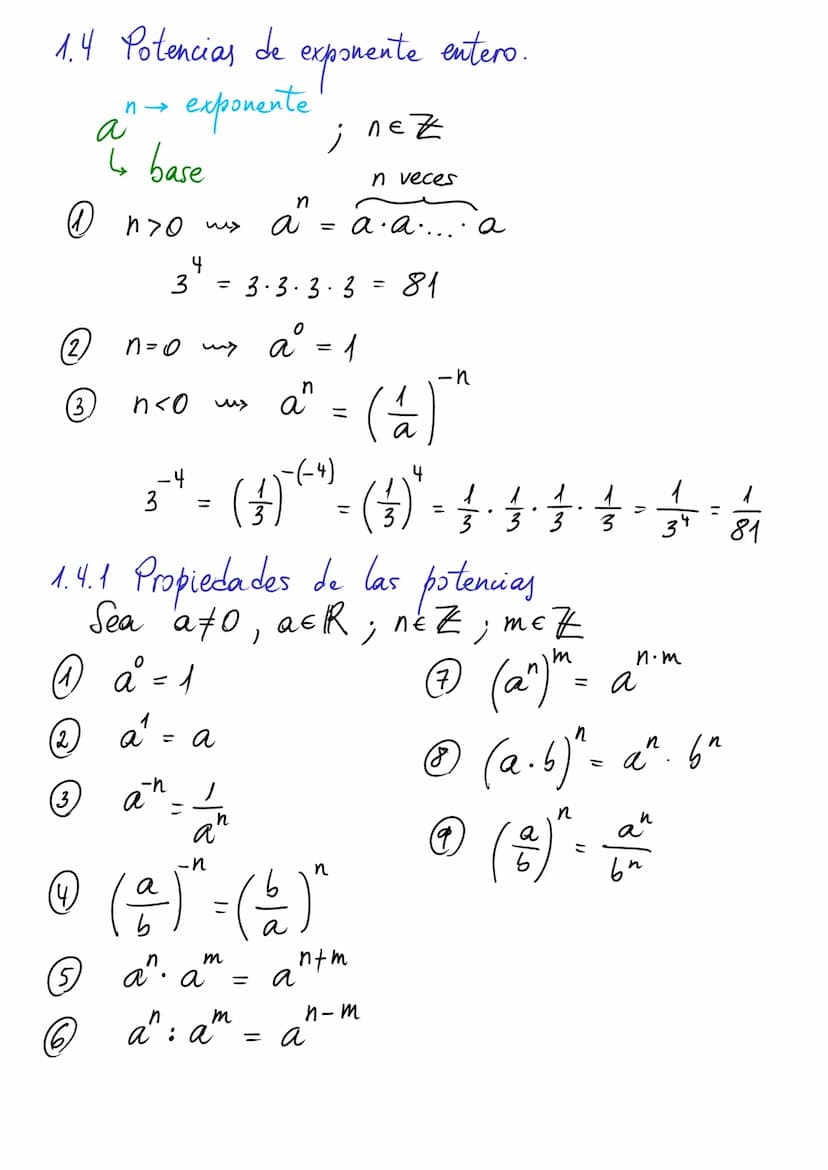 1.4 Potencias de exponente entero.
aⁿ → exponente ; n ∈ ℤ
↳ base
n veces
① n>0 ⇝ aⁿ = a·a·...·a
3⁴ = 3·3·3·3 = 81
② n=0 ⇝ a⁰ = 1
③ n<0 ⇝ aⁿ = (1/a)⁻ⁿ
3⁻⁴ = (1/3)⁻⁽⁻⁴⁾ = (1/3)⁴ = 1/3 · 1/3 · 1/3 · 1/3 = 1/3⁴ = 1/81
1.4.1 Propiedades de las potencias
Sea a≠0, a∈ℝ ; n∈ℤ ; m∈ℤ
① a⁰ = 1
② a¹ = a
③ a⁻ⁿ = 1/aⁿ
④ (a/b)⁻ⁿ = (b/a)ⁿ
⑤ aⁿ · aᵐ = aⁿ⁺ᵐ
⑥ aⁿ : aᵐ = aⁿ⁻ᵐ
⑦ (aⁿ)ᵐ = aⁿ·ᵐ
⑧ (a·b)ⁿ = aⁿ · bⁿ
⑨ (a/b)ⁿ = aⁿ/bⁿ